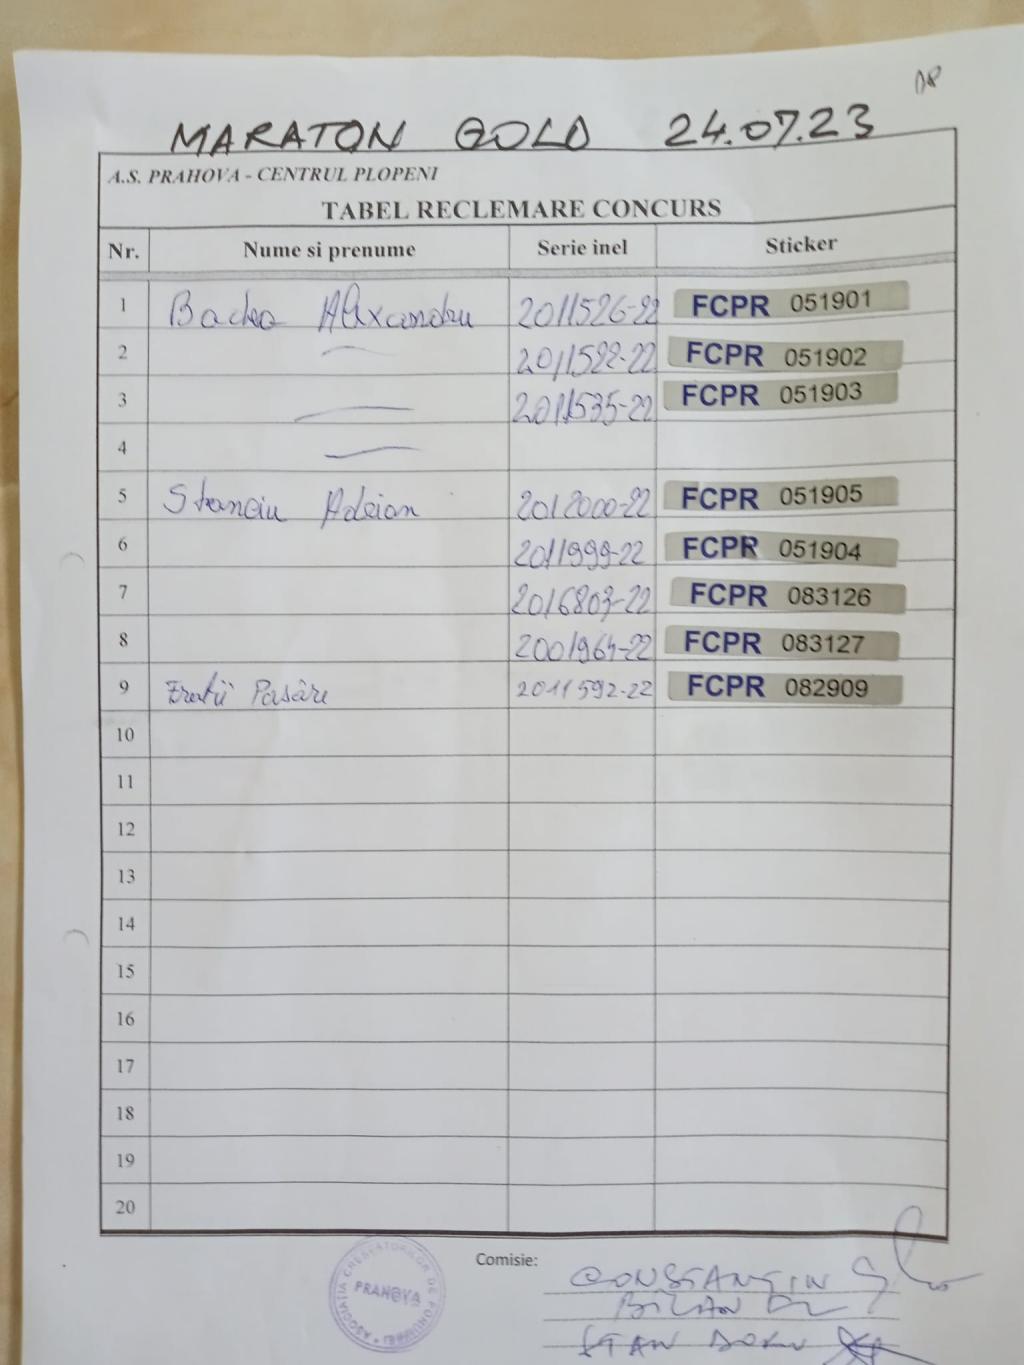 MARATON GOLD 24.07.23
A.S. PRAHOVA - CENTRUL PLOPENI
TABEL RECLEMARE CONCURS
Nr. Nume si prenume Serie inel Sticker
1 Alexandru 2011526-22 FCPR 051901
2 — 2011522-22 FCPR 051902
3 — 2011535-22 FCPR 051903
4 —
5 Stanciu Adrian 2012000-22 FCPR 051905
6 2011999-22 FCPR 051904
7 2016803-22 FCPR 083126
8 2001964-22 FCPR 083127
9 Pasăre 2011592-22 FCPR 082909
10
11
12
13
14
15
16
17
18
19
20
Comisie:
CONSTANTIN
STAN
ASOCIATIA CRESCATORILOR DE PORUMBEI
PRAHOVA